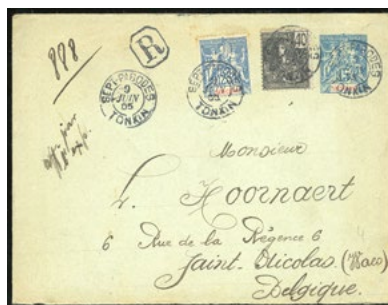 888
R
SEPT-PAGODES
9
JUIN
05
TONKIN
SEPT-PAGODES
TONKIN
40
TONKIN
15
Monsieur
L. Hoornaert
6 Rue de la Régence 6
Saint-Nicolas (Waes)
Belgique.